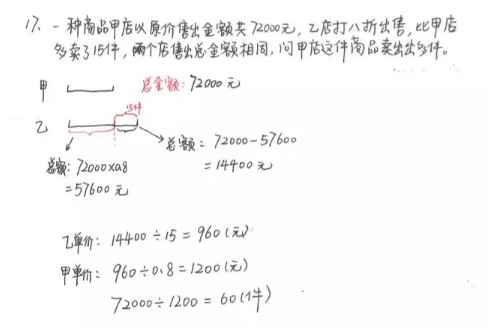 17、一种商品甲店以原价售出金额共72000元，乙店打八折出售，比甲店
多卖了15件，两个店售出总金额相同，问甲店这件商品卖出多少件。
甲
总金额：72000元
15件
乙
总额：72000-57600
=14400元
总额：72000×0.8
=57600元
乙单价：14400÷15=960(元)
甲单价：960÷0.8=1200(元)
72000÷1200=60(件)